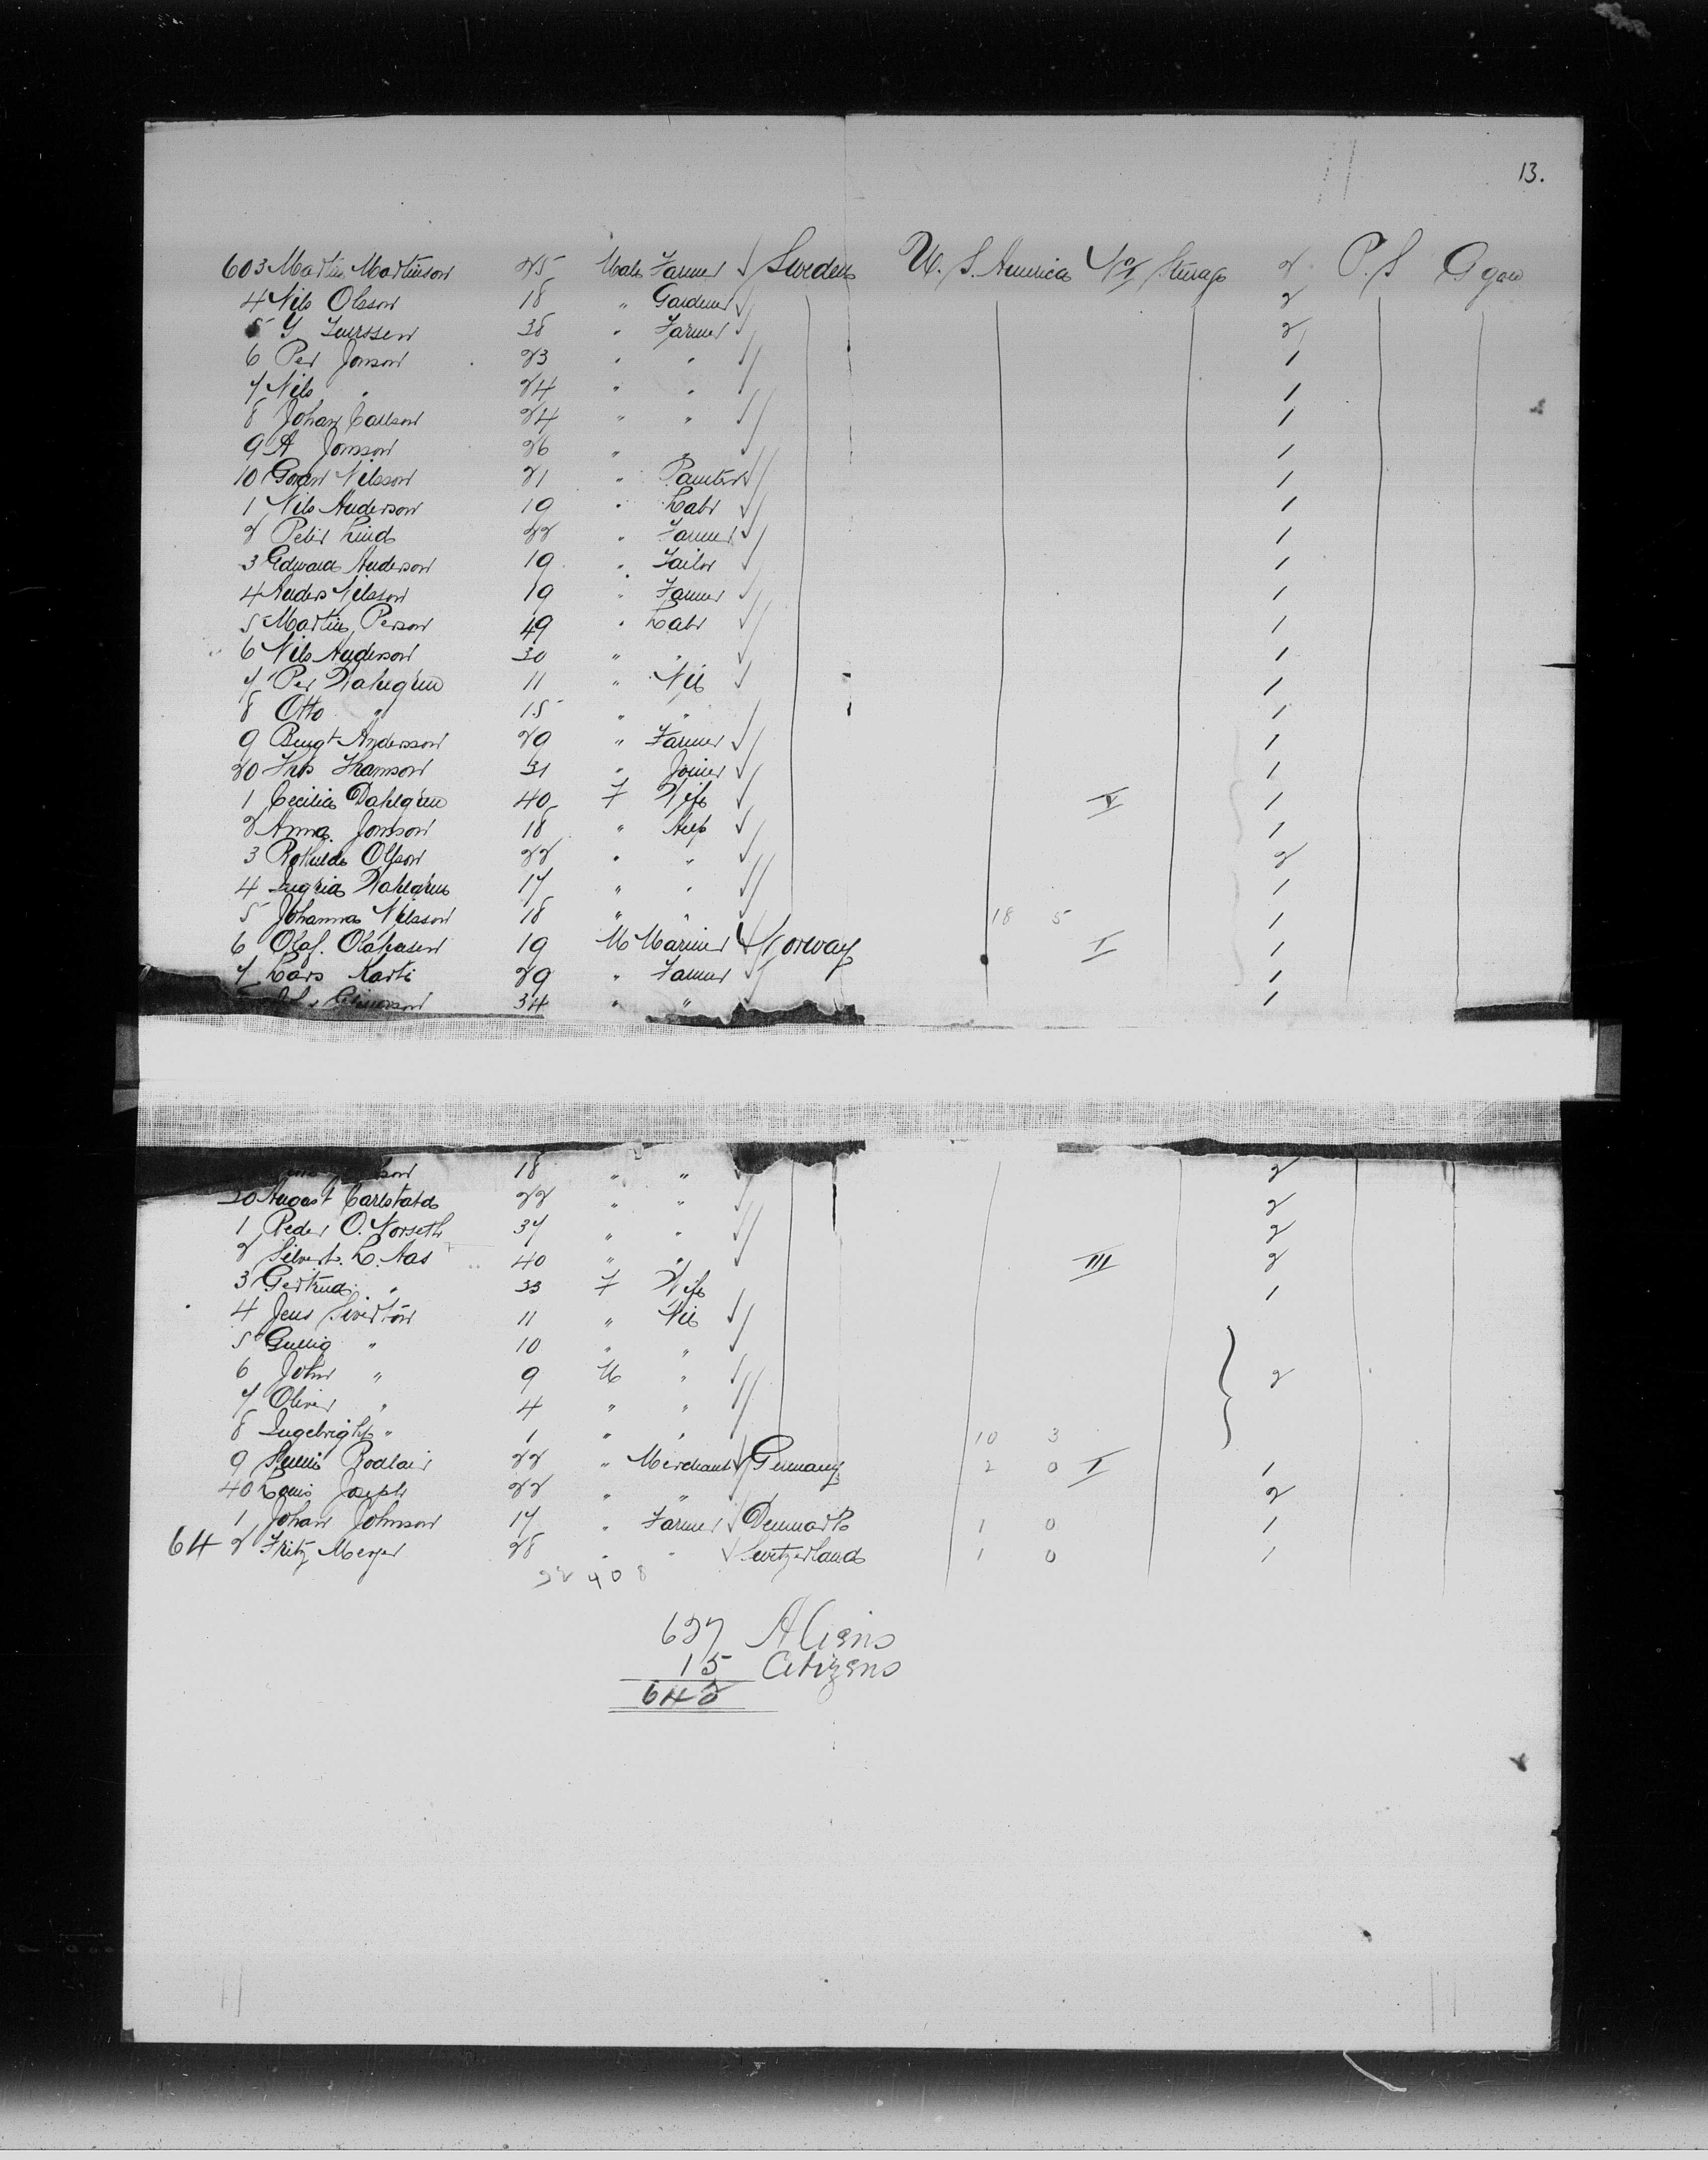 13.
603 Martin Martinson 25 Male Farmer Sweden U. S. America Steerage 2 P. S
4 Nils Olsson 18 " Gardener 2
5 G 38 " Farmer 2
6 Per Jonson 23 " " 1
7 Nils " 24 " " 1
8 Johan Carlson 24 " " 1
9 A Jonson 26 " " 1
10 Goran Nilsson 21 " Painter 1
1 Nils Anderson 19 " Labr 1
2 Peter Lind 22 " Farmer 1
3 Edward Anderson 19 " Tailor 1
4 Anders Nilsson 19 " Farmer 1
5 Martin Person 49 " Labr 1
6 Nils Anderson 30 " " 1
7 Per Dahlgren 11 " Nil 1
8 Otto " 15 " " 1
9 Bengt Andersson 29 " Farmer 1
20 31 " Joiner 1
1 Cecilia Dahlgren 40 F Wife V 1
2 Anna Jonson 18 " Help 1
3 Olson 22 " " 2
4 Ingrid Dahlgren 17 " " 1
5 Johanna Nilsson 18 " " 18 5 1
6 Olof. 19 M Mariner Norway I 1
7 Lars 29 " Farmer 1
34 " " 1
18 " " 2
30 August 22 " " 2
1 Peder O. Norseth 37 " " 2
2 Sivert. L. Aas 40 " " III 2
3 Gertrud " 33 F Wife 1
4 Jens 11 " Nil
5 " 10 " "
6 John " 9 M " 2
7 Oliver " 4 " "
8 Ingebright " 1 " " 10 3
9 22 " Merchant Germany 2 0 I 1
40 Louis Joseph 22 " " 2
1 Johan Johnson 17 " Farmer Denmark 1 0 1
642 Fritz Meyer 28 " " Switzerland 1 0 1
22 40 8
627 Aliens
15 Citizens
642